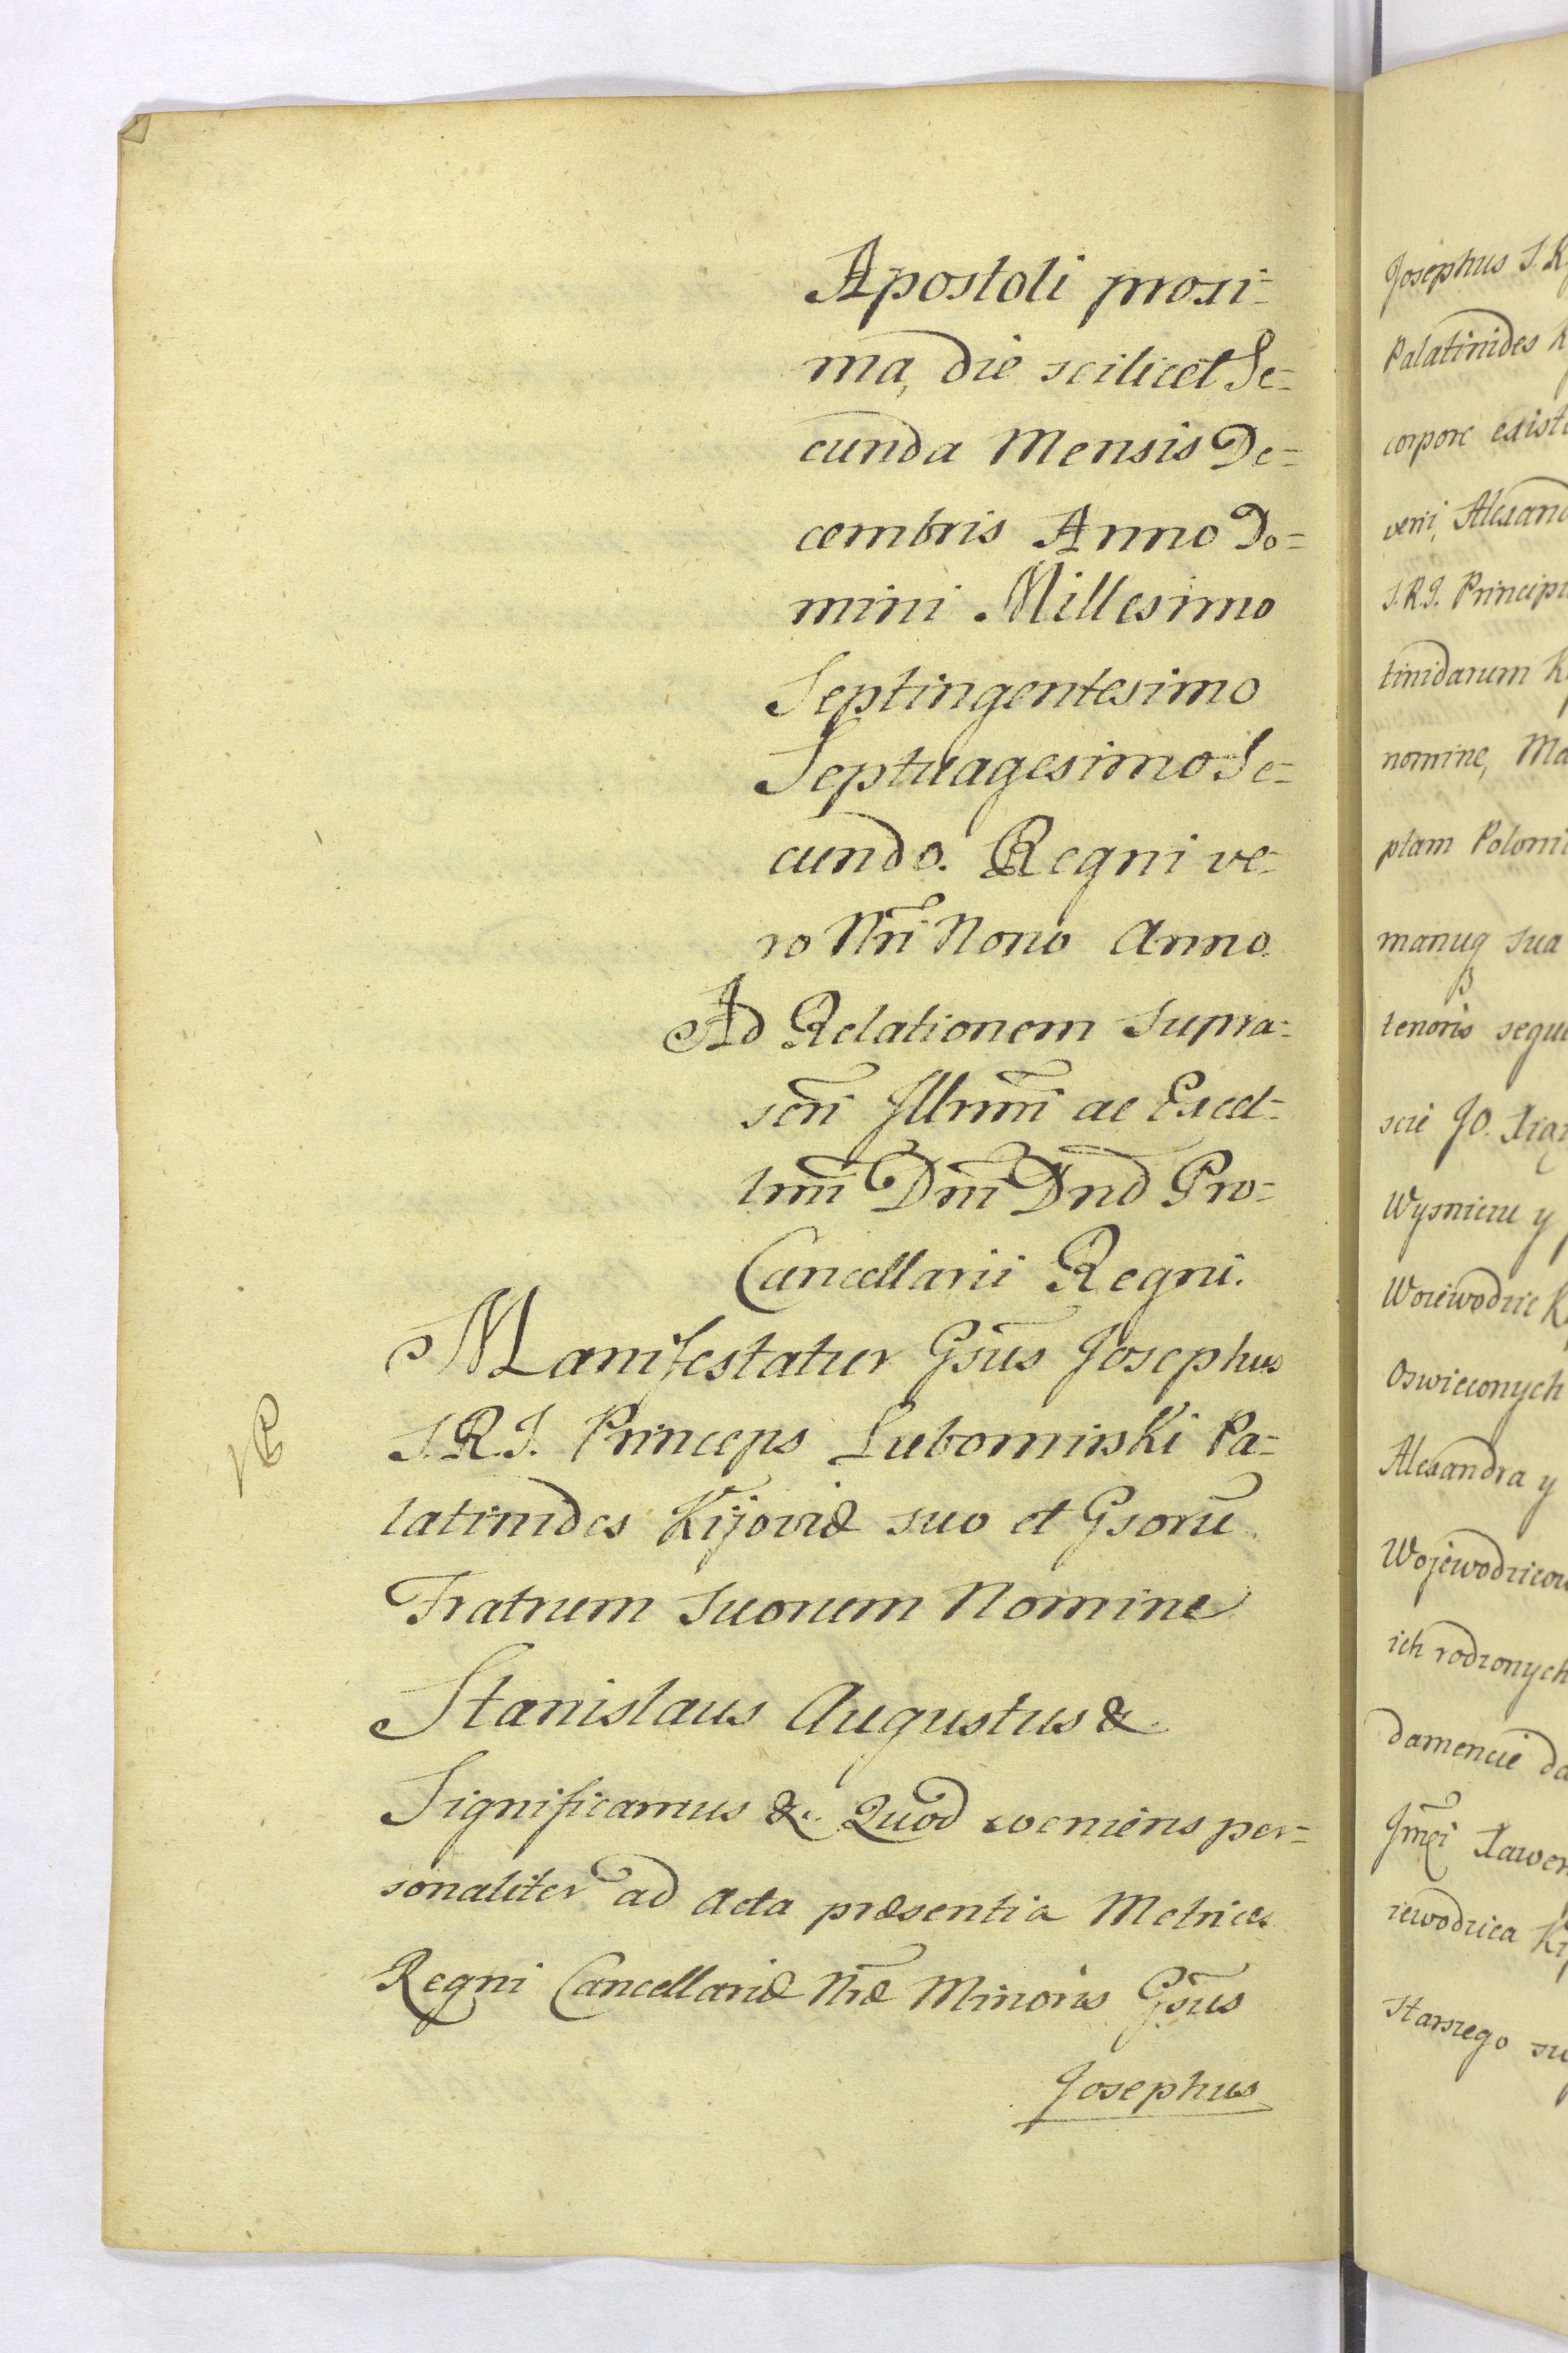 Apostoli proxi=
ma, die scilicet Se=
cunda Mensis De=
cembris Anno Do=
mini Millesimo
Septingentesimo
Septuagesimo Se=
cundo. Regni ve=
ro Nri Nono Anno.
Ad Relationem supra=
scri Illrmi ac Excel=
lmi Dni Dnd Pro=
Cancellarii Regni.
Manifestatur Gsus Josephus
S.R.I. Princeps Lubomirski Pa=
latinides Kijoviæ suo et Gsorū
Fratrum suorum Nomine
Stanislaus Augustus &
Significamus &. Quod veniens per=
sonaliter ad Acta præsentia Metrices
Regni Cancellariæ Nræ Minoris Gsus
Josephus
Josephus S.R.
Palatinides
corpore existe
veni, Alexand
S.R.I. Principu
tinidarum K
nomine, Ma
ptam Poloni
manuq sua
tenoris sequ
scie JO. Xiąż
Wysniczu y
Woiewodzic K
Oswieconych
Alexandra y
Wojewodzicow
ich rodzonych
damencie da
Jmci Xawer
iewodzica Ki
Starszego su